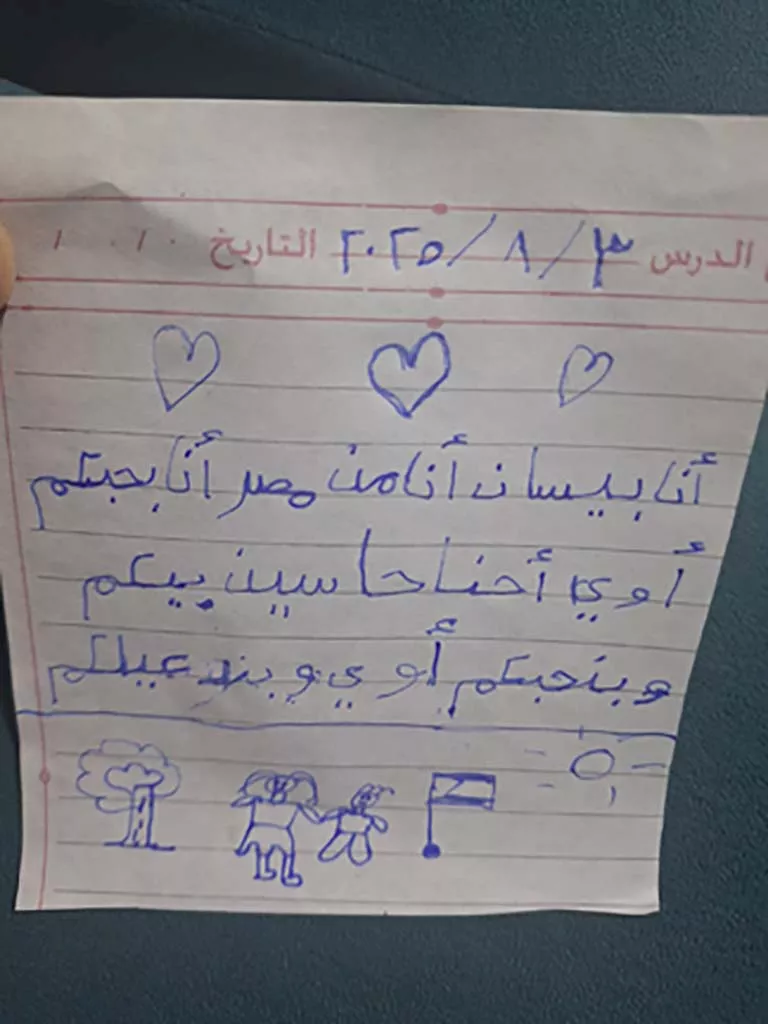 الدرس ٣/٨/٢٠٢٥ التاريخ
أنا بيسان أنا من مصر أنا بحبكم
أوي أحنا حاسين بيكم
وبنحبكم أوي وبندعيلكم